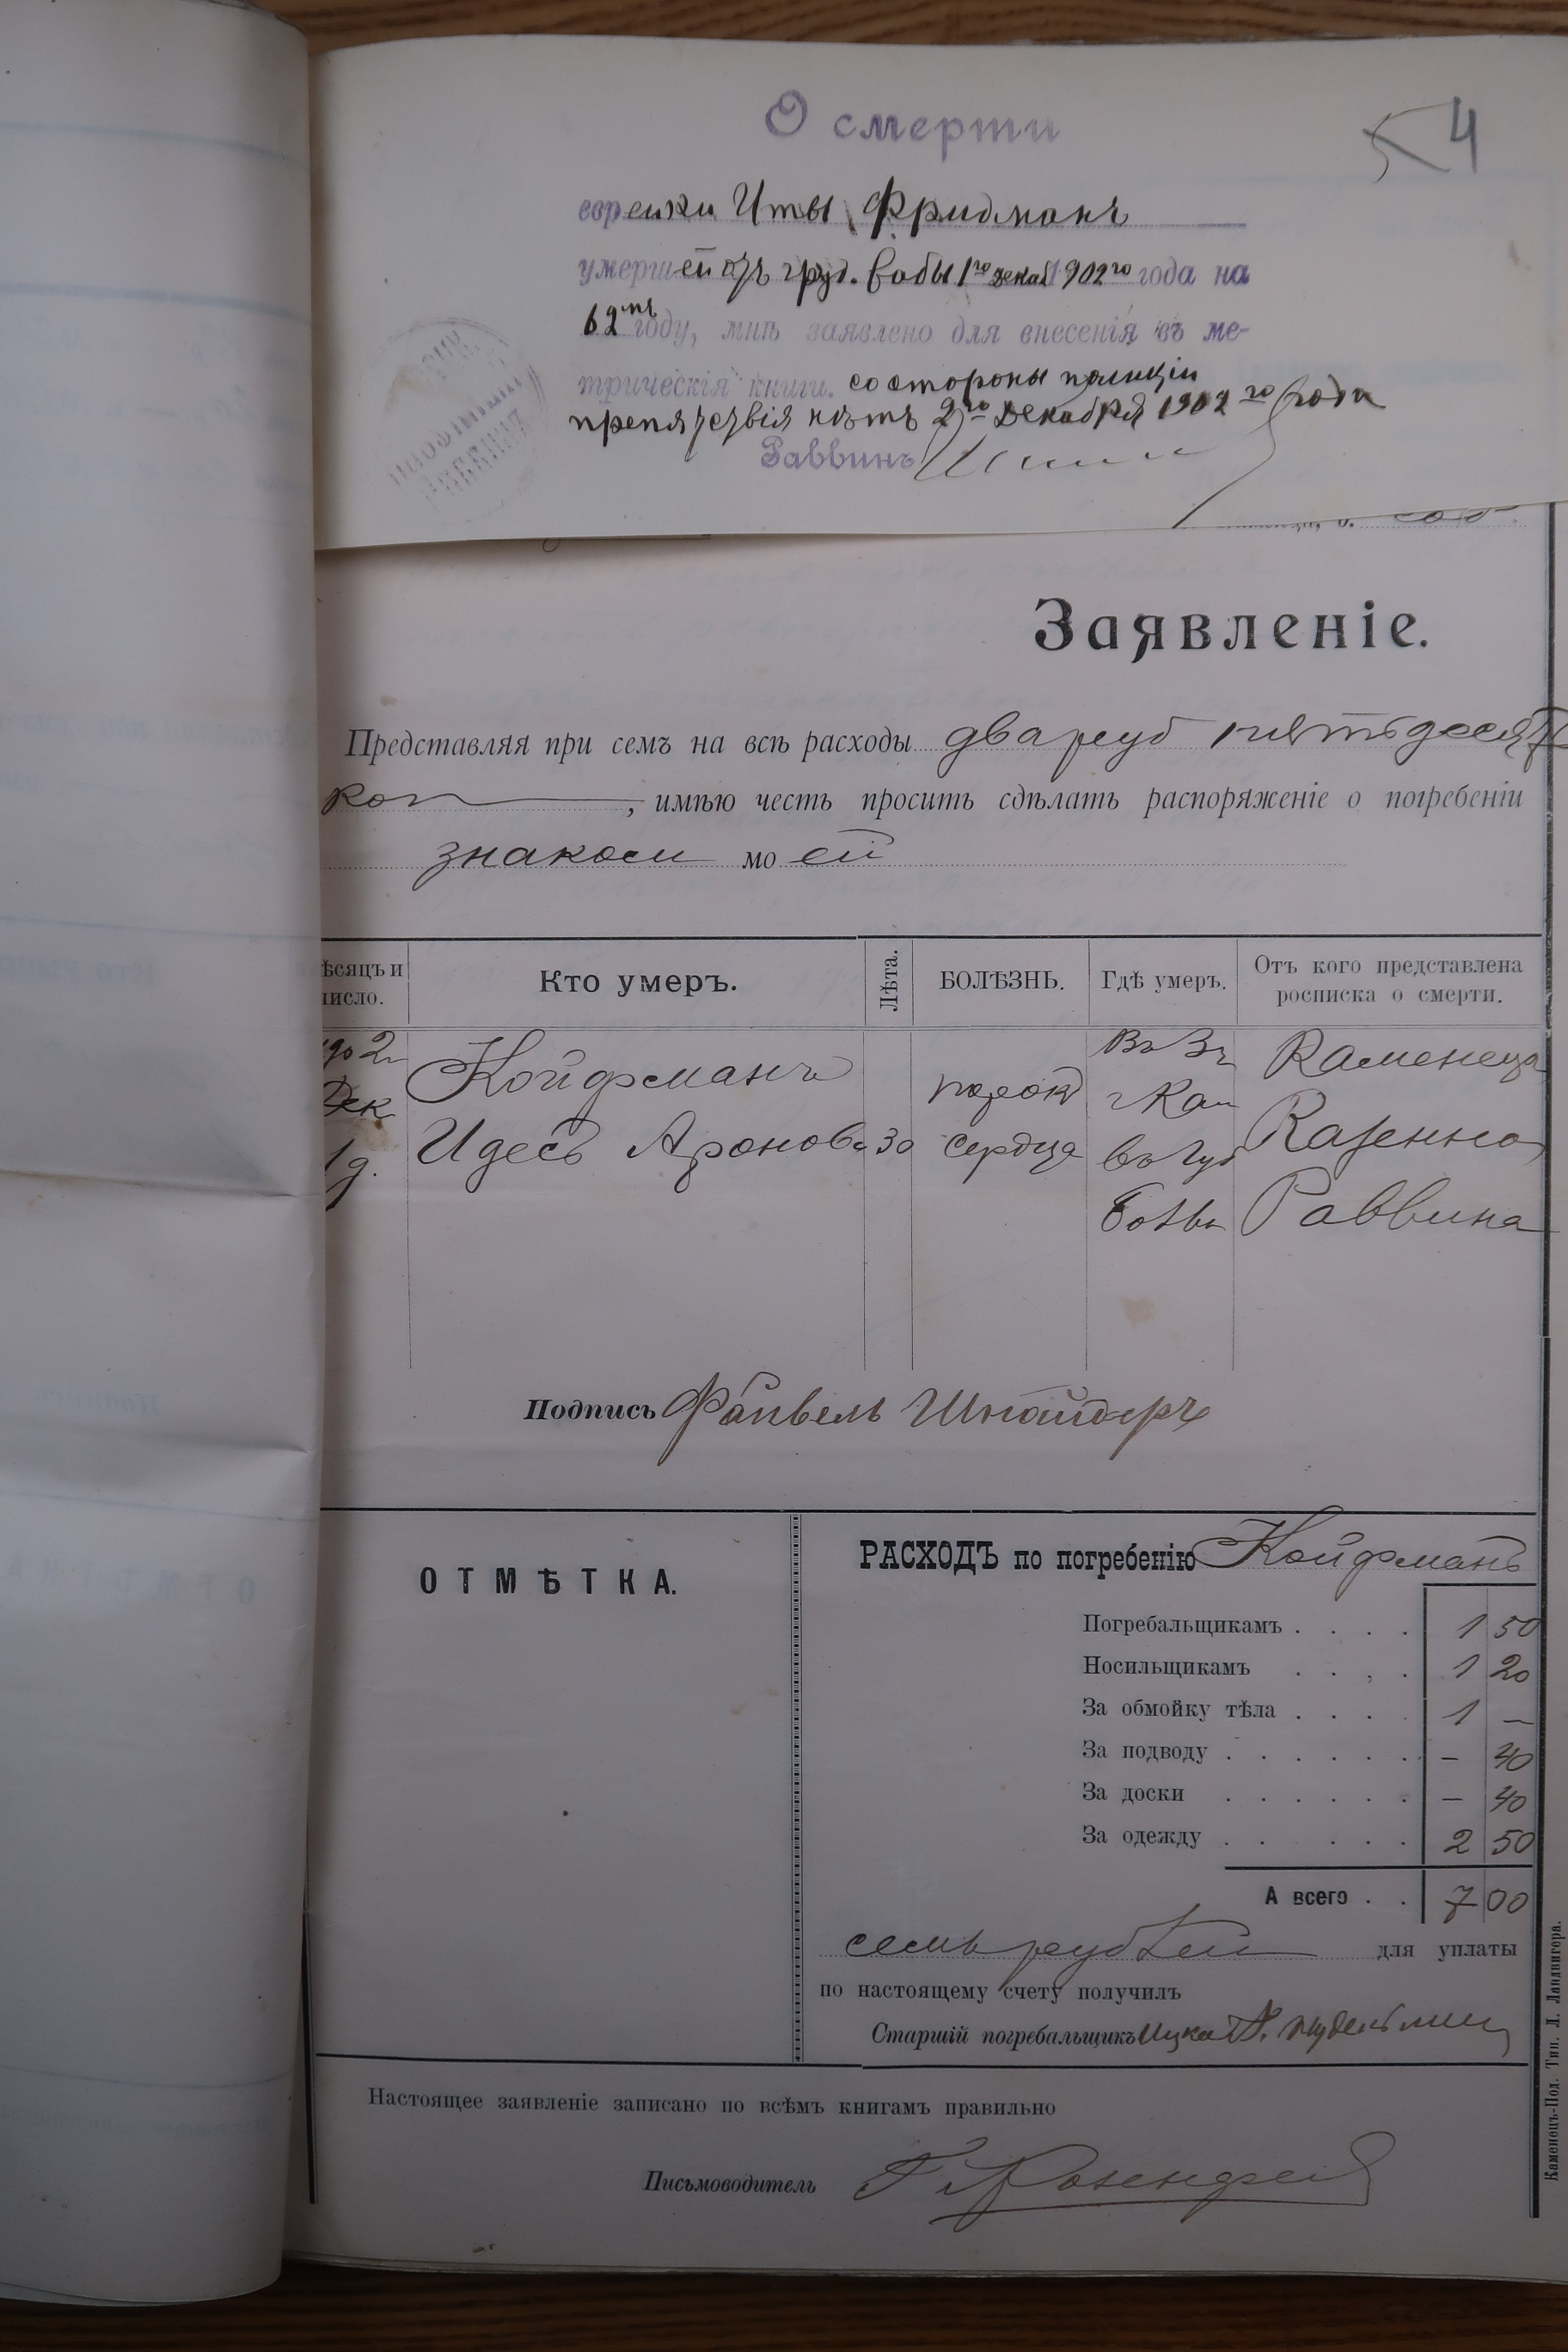 О смерти
54
еврейки Иты Фридманъ
умершей отъ груд. бабы 1го декаб 1902го года на
62мъ году, мнѣ заявлено для внесенія въ ме-
трическія книги. со стороны полиціи
препятствія нѣтъ 2го Декабря 1902го года
Раввинъ
Заявленіе.
Представляя при семъ на всѣ расходы два руб пятьдесят
коп, имѣю честь просить сдѣлать распоряженіе о погребеніи
знаком моей
ѣсяцъ и число. Кто умеръ. Лѣта. БОЛѢЗНЬ. Гдѣ умеръ. Отъ кого представлена росписка о смерти.
902 Койфманъ Каменецъ
Дек порок г Кам
1 д. Идесь Аронова 30 сердца въ Губ Казенно
Раввина
Подпись Файвель Шнайдеръ
ОТМѢТКА.
РАСХОДЪ по погребенію Койфманъ
Погребальщикамъ . . . . 1 50
Носильщикамъ . . . . 1 20
За обмойку тѣла . . . . 1 —
За подводу . . . . . . — 40
За доски . . . . . . — 40
За одежду . . . . . 2 50
А всего . . 7 00
семь рублей для уплаты
по настоящему счету получилъ
Старшій погребальщикъ Ицка
Настоящее заявленіе записано по всѣмъ книгамъ правильно
Письмоводитель Г. Розенфельд
Каменецъ-Под. Тип. Л. Ландвигера.